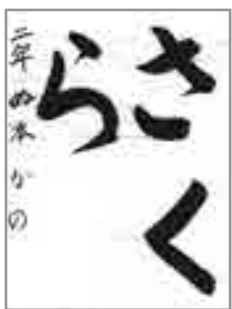 さく
ら
二年 ぬ本 かの